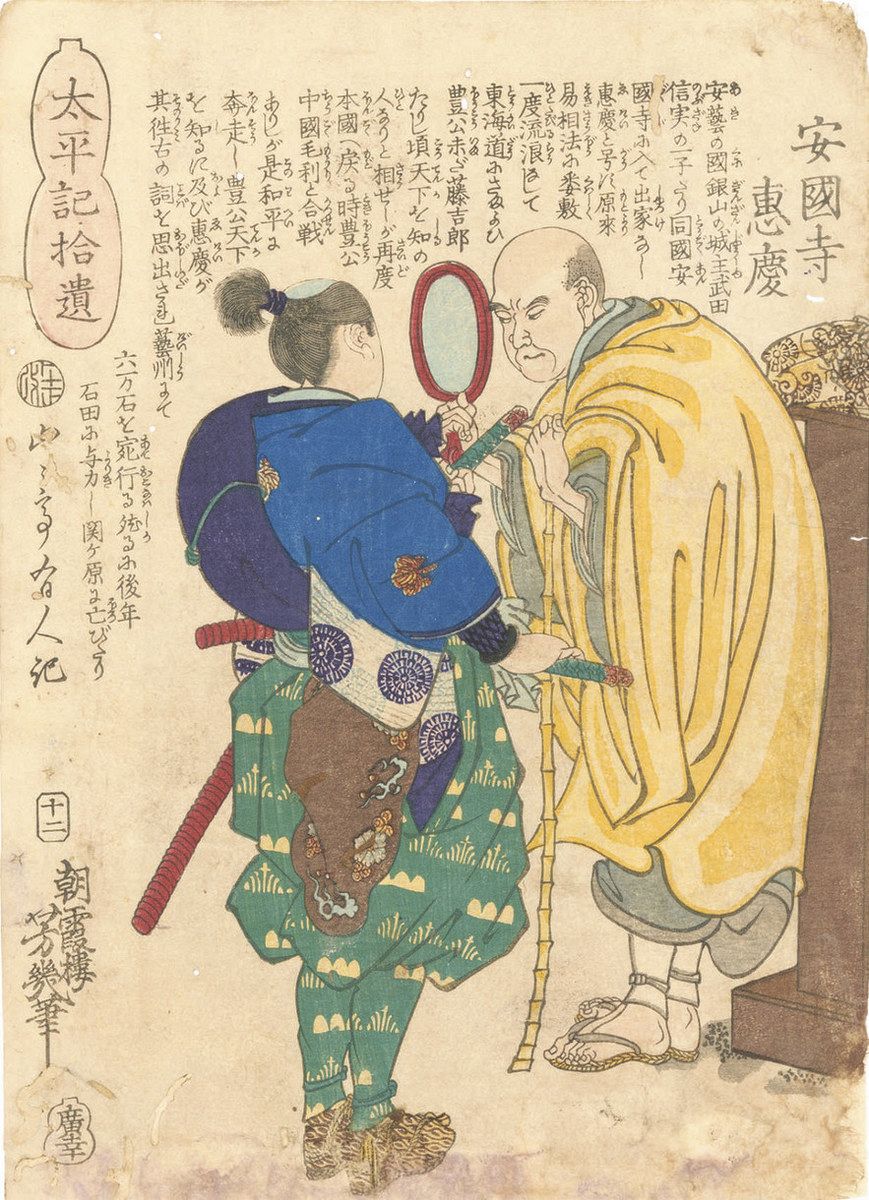 安國寺
惠慶
安藝の國銀山の城主武田
信実の一子たり同國安
國寺に入て出家なし
惠慶と号す原來
易相法に委敷
一度流浪して
東海道にさまよひ
豊公未だ藤吉郎
たりし頃天下を知の
人なりと相せしが再度
本國へ戻る時豊公
中國毛利と合戦
ありしが是和平に
奔走し豊公天下
を知るに及び惠慶が
其徃古の詞を思出され藝州にて
六万石を宛行る然るに後年
石田に与力し関ケ原に亡びたり
山々亭有人記
太平記拾遺
十二
朝霞樓
芳幾筆
廣幸